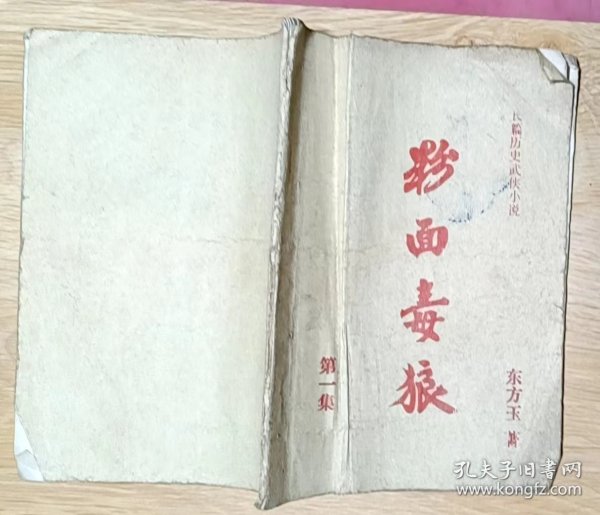 长篇历史武侠小说
粉面毒狼
东方玉 著
第一集
孔夫子旧书网
www.kongfz.com